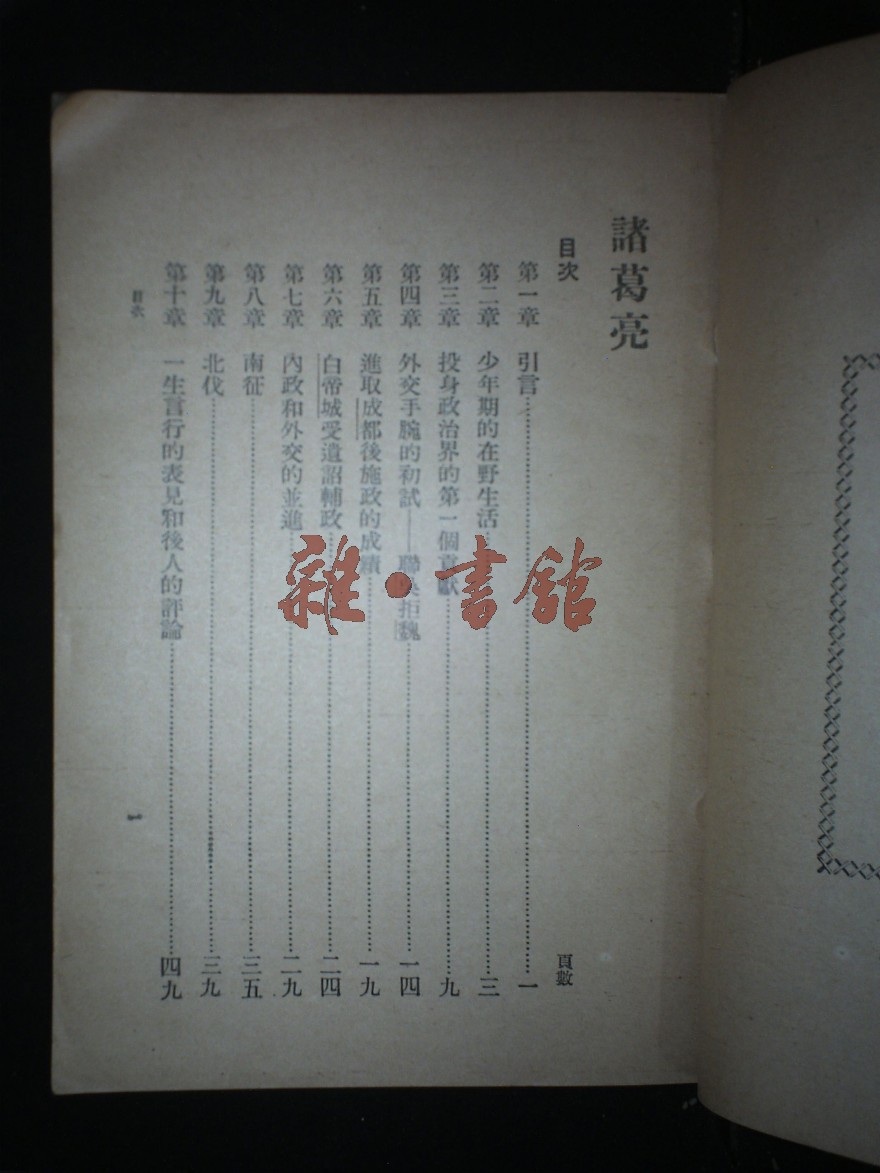 諸葛亮
目次 頁數
第一章 引言……一
第二章 少年期的在野生活……三
第三章 投身政治界的第一個貢獻……九
第四章 外交手腕的初試——聯吳拒魏……一四
第五章 進取成都後施政的成績……一九
第六章 白帝城受遺詔輔政……二四
第七章 內政和外交的並進……二九
第八章 南征……三五
第九章 北伐……三九
第十章 一生言行的表見和後人的評論……四九
目次 1
雜·書館